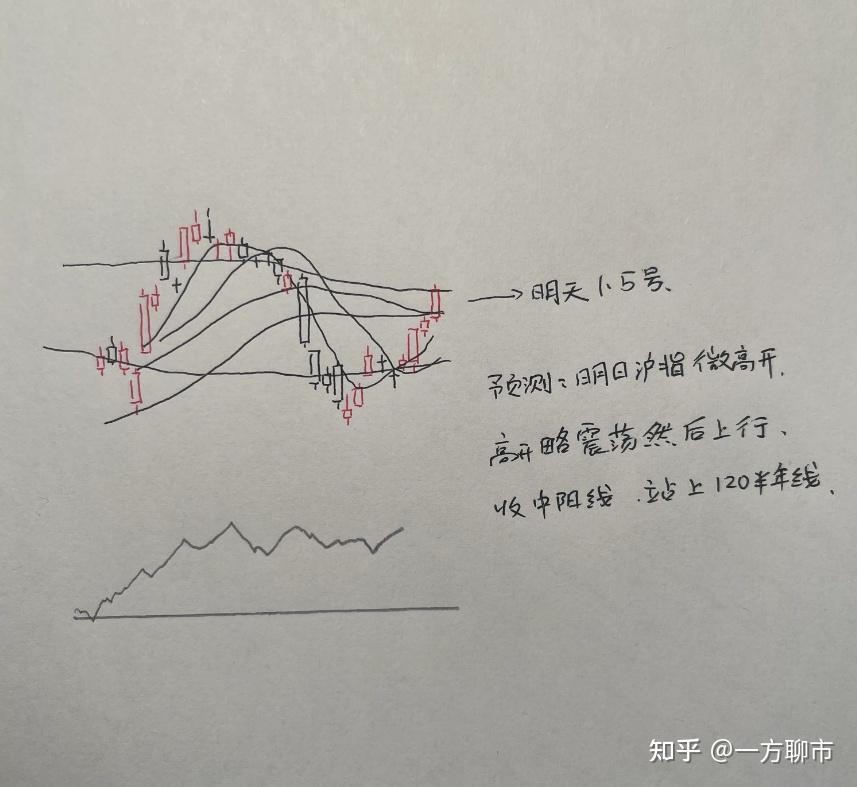 明天1.5号、
予测：明日沪指微高开.
高开略震荡然后上行、
收中阳线.站上120半年线.
知乎 @一方聊市